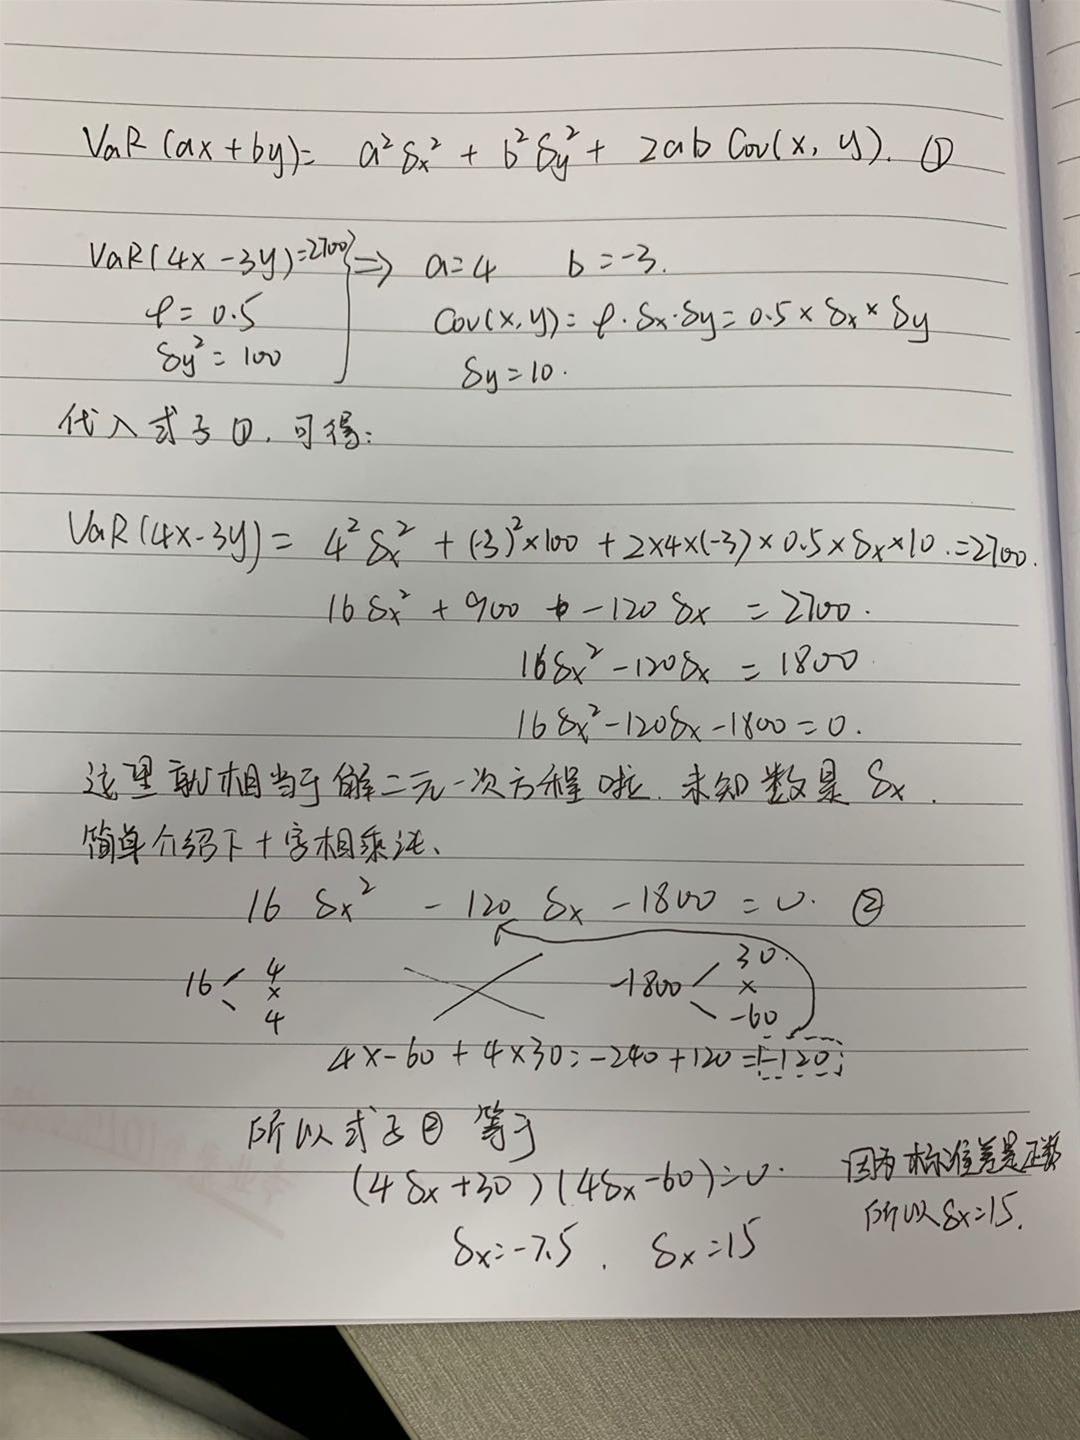 VaR(ax+by)= a²δx² + b²δy² + 2ab Cov(x, y). ①
VaR(4x-3y)=2700 ⇒ a=4 b=-3.
ρ=0.5 Cov(x,y)=ρ·δx·δy=0.5×δx×δy
δy²=100 δy=10.
代入式子①,可得:
VaR(4x-3y)= 4²δx² + (-3)²×100 + 2×4×(-3)×0.5×δx×10.=2700.
16δx² + 900 + -120δx = 2700.
16δx² -120δx = 1800
16δx²-120δx-1800=0.
这里就相当于解二元一次方程啦.未知数是δx.
简单介绍下十字相乘法、
16 δx² - 120 δx - 1800 = 0. ②
16 4 × 4 -1800 30. × -60
4×-60 + 4×30=-240+120=-120
所以式子②等于
(4δx+30)(4δx-60)=0.
因为标准差是正数
所以δx=15.
δx=-7.5. δx=15